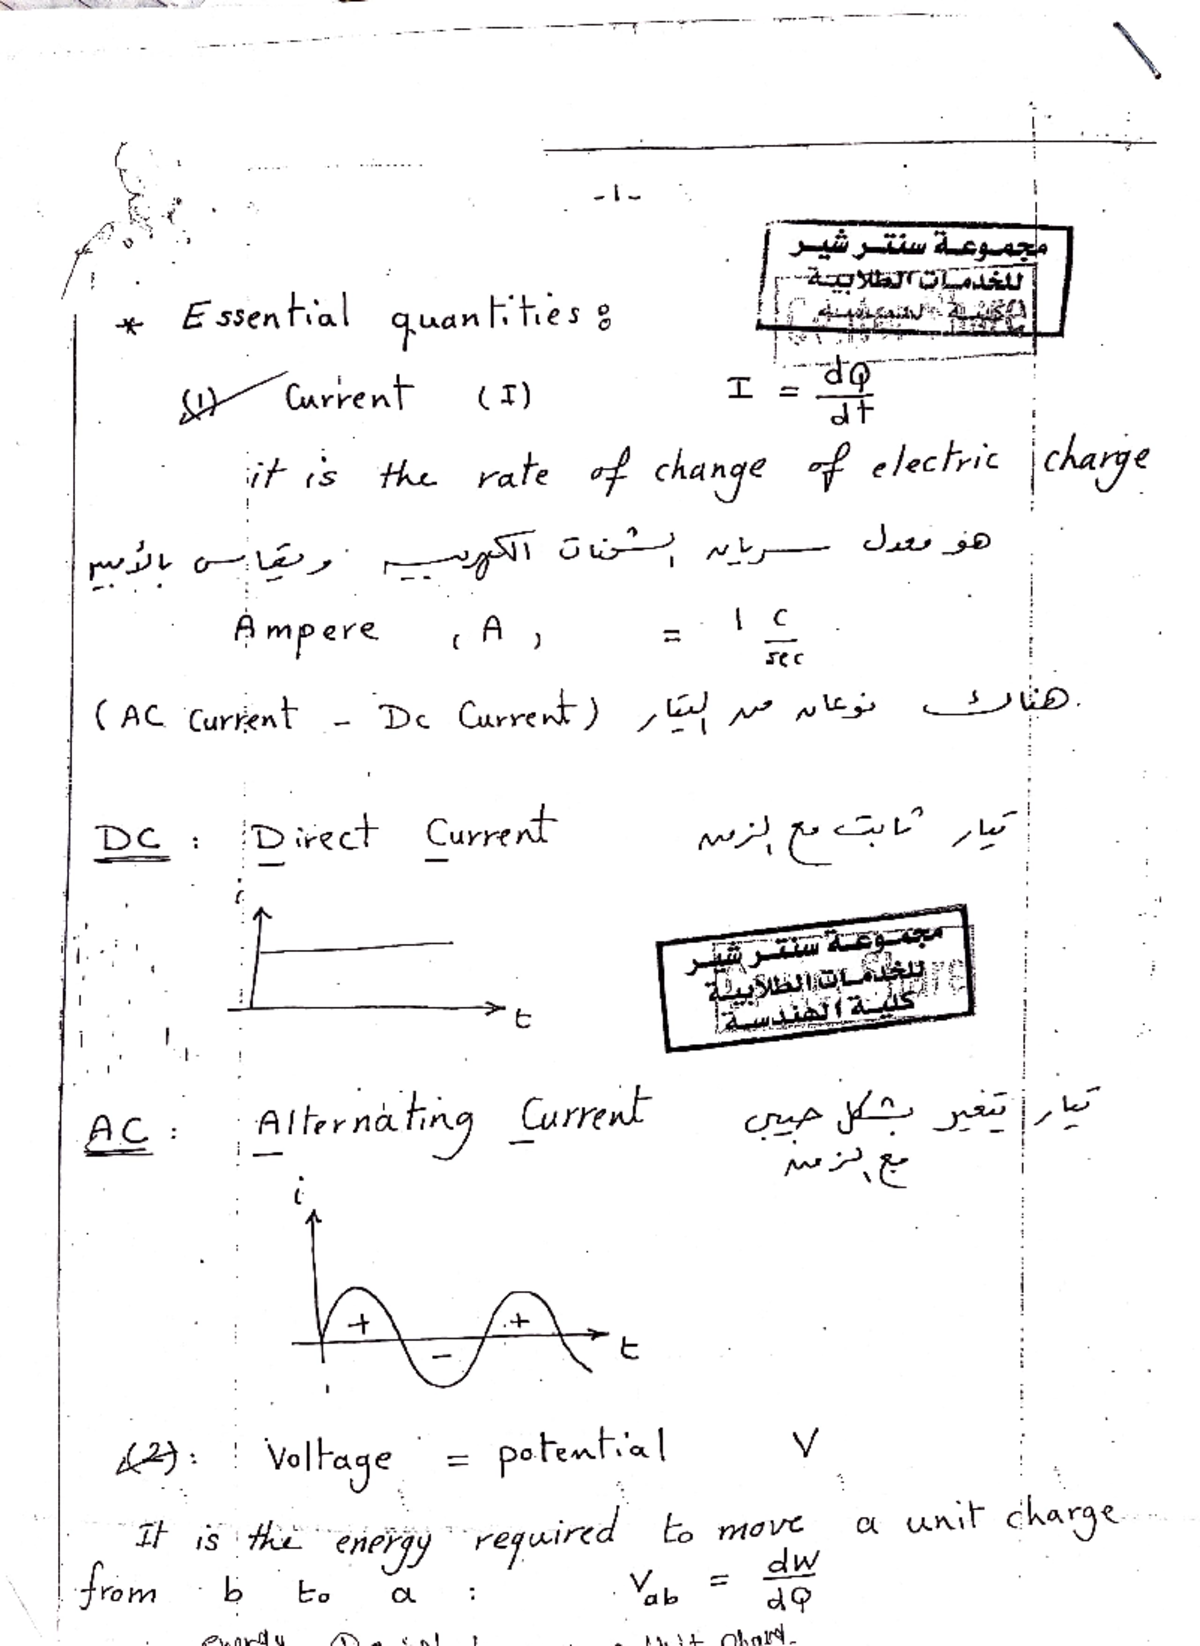 -1-
مجموعة سنتر شير
للخدمات الطلابية
كلية الهندسة
* Essential quantities:
(1) Current (I) I = dQ/dt
it is the rate of change of electric charge
هو معدل سريان الشحنات الكهربية ويقاس بالأمبير
Ampere (A) = 1 C/sec
هناك نوعان من التيار (AC Current - Dc Current)
DC : Direct Current تيار ثابت مع الزمن
i
t
مجموعة سنتر شير
للخدمات الطلابية
كلية الهندسة
AC : Alternating Current تيار يتغير بشكل جيبى
مع الزمن
i
+ - + t
(2): Voltage = potential V
It is the energy required to move a unit charge
from b to a : Vab = dW/dQ
energy